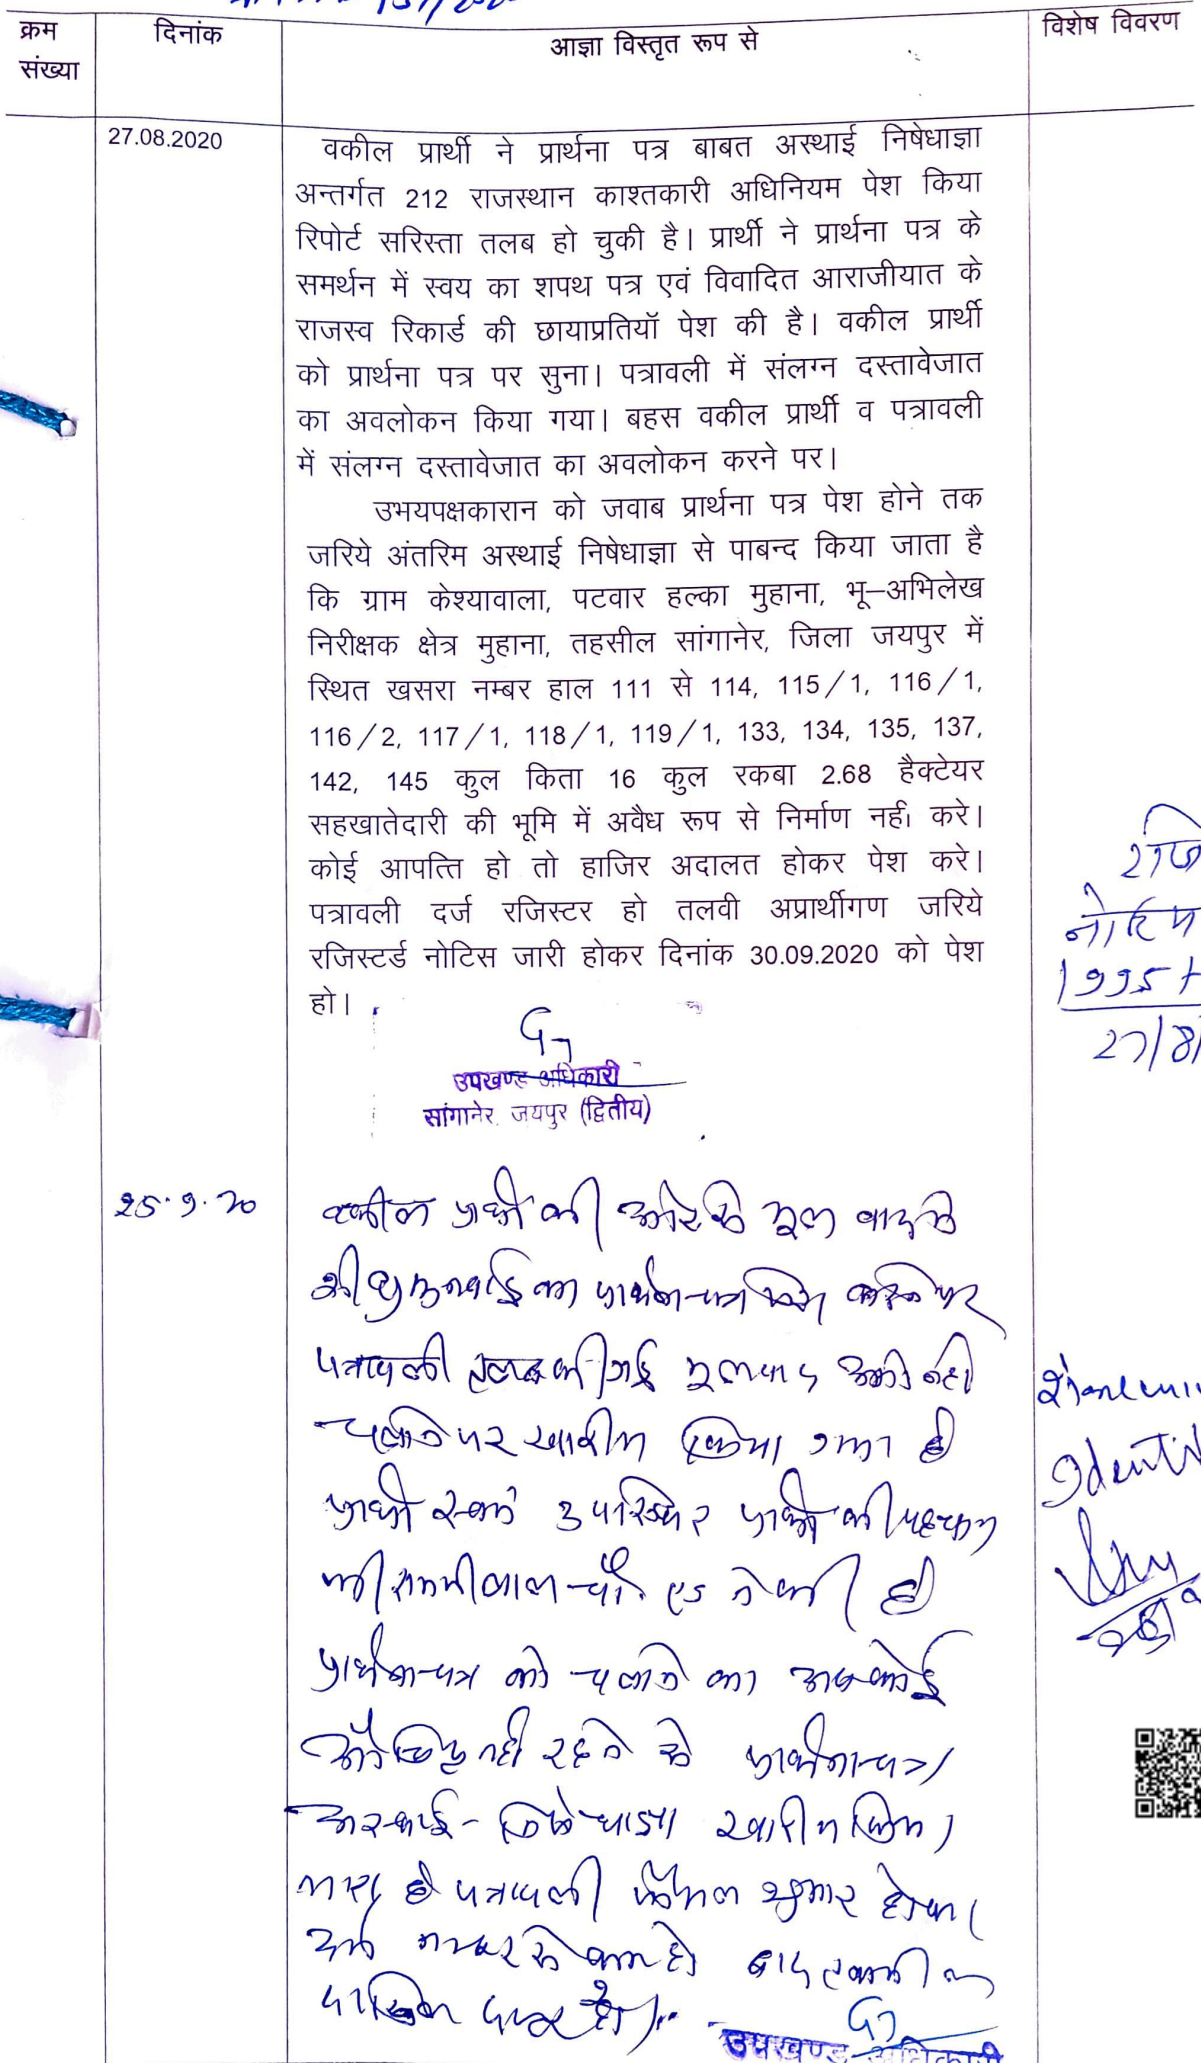 क्रम
संख्या
दिनांक
आज्ञा विस्तृत रूप से
विशेष विवरण
27.08.2020
वकील प्रार्थी ने प्रार्थना पत्र बाबत अस्थाई निषेधाज्ञा
अन्तर्गत 212 राजस्थान काश्तकारी अधिनियम पेश किया
रिपोर्ट सरिस्ता तलब हो चुकी है। प्रार्थी ने प्रार्थना पत्र के
समर्थन में स्वय का शपथ पत्र एवं विवादित आराजीयात के
राजस्व रिकार्ड की छायाप्रतियॉ पेश की है। वकील प्रार्थी
को प्रार्थना पत्र पर सुना। पत्रावली में संलग्न दस्तावेजात
का अवलोकन किया गया। बहस वकील प्रार्थी व पत्रावली
में संलग्न दस्तावेजात का अवलोकन करने पर।
उभयपक्षकारान को जवाब प्रार्थना पत्र पेश होने तक
जरिये अंतरिम अस्थाई निषेधाज्ञा से पाबन्द किया जाता है
कि ग्राम केश्यावाला, पटवार हल्का मुहाना, भू–अभिलेख
निरीक्षक क्षेत्र मुहाना, तहसील सांगानेर, जिला जयपुर में
स्थित खसरा नम्बर हाल 111 से 114, 115/1, 116/1,
116/2, 117/1, 118/1, 119/1, 133, 134, 135, 137,
142, 145 कुल किता 16 कुल रकबा 2.68 हैक्टेयर
सहखातेदारी की भूमि में अवैध रूप से निर्माण नहीं करे।
कोई आपत्ति हो तो हाजिर अदालत होकर पेश करे।
पत्रावली दर्ज रजिस्टर हो तलवी अप्रार्थीगण जरिये
रजिस्टर्ड नोटिस जारी होकर दिनांक 30.09.2020 को पेश
हो।
उपखण्ड अधिकारी
सांगानेर, जयपुर (द्वितीय)
25.9.20
वकील प्रार्थी की ओर से मूल वाद में
शीघ्र सुनवाई का प्रार्थना-पत्र पेश करने पर
पत्रावली तलब की गई मूलवाद आगे नहीं
चलाने पर खारीज किया गया है
प्रार्थी स्वयं उपस्थित प्रार्थी की पहचान
एड ने की है
प्रार्थना-पत्र को चलाने का अब कोई
औचित्य नहीं रहने से प्रार्थना-पत्र
अस्थाई-निषेधाज्ञा खारीज किया
जाता है पत्रावली फैसल शुमार होकर
नम्बर से कम हो बाद तकमील
दाखिल दफ्तर हो।
उपखण्ड अधिकारी